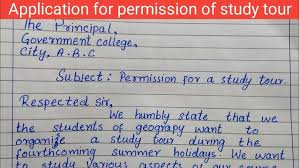 Application for permission of study tour
The Principal,
Government college,
City, A.B.C
Subject: Permission for a study tour.
Respected Sir,
We humbly state that we
the students of geograpy want to
organize a study tour during the
fourthcoming summer holidays. We want
to study various aspects of our course